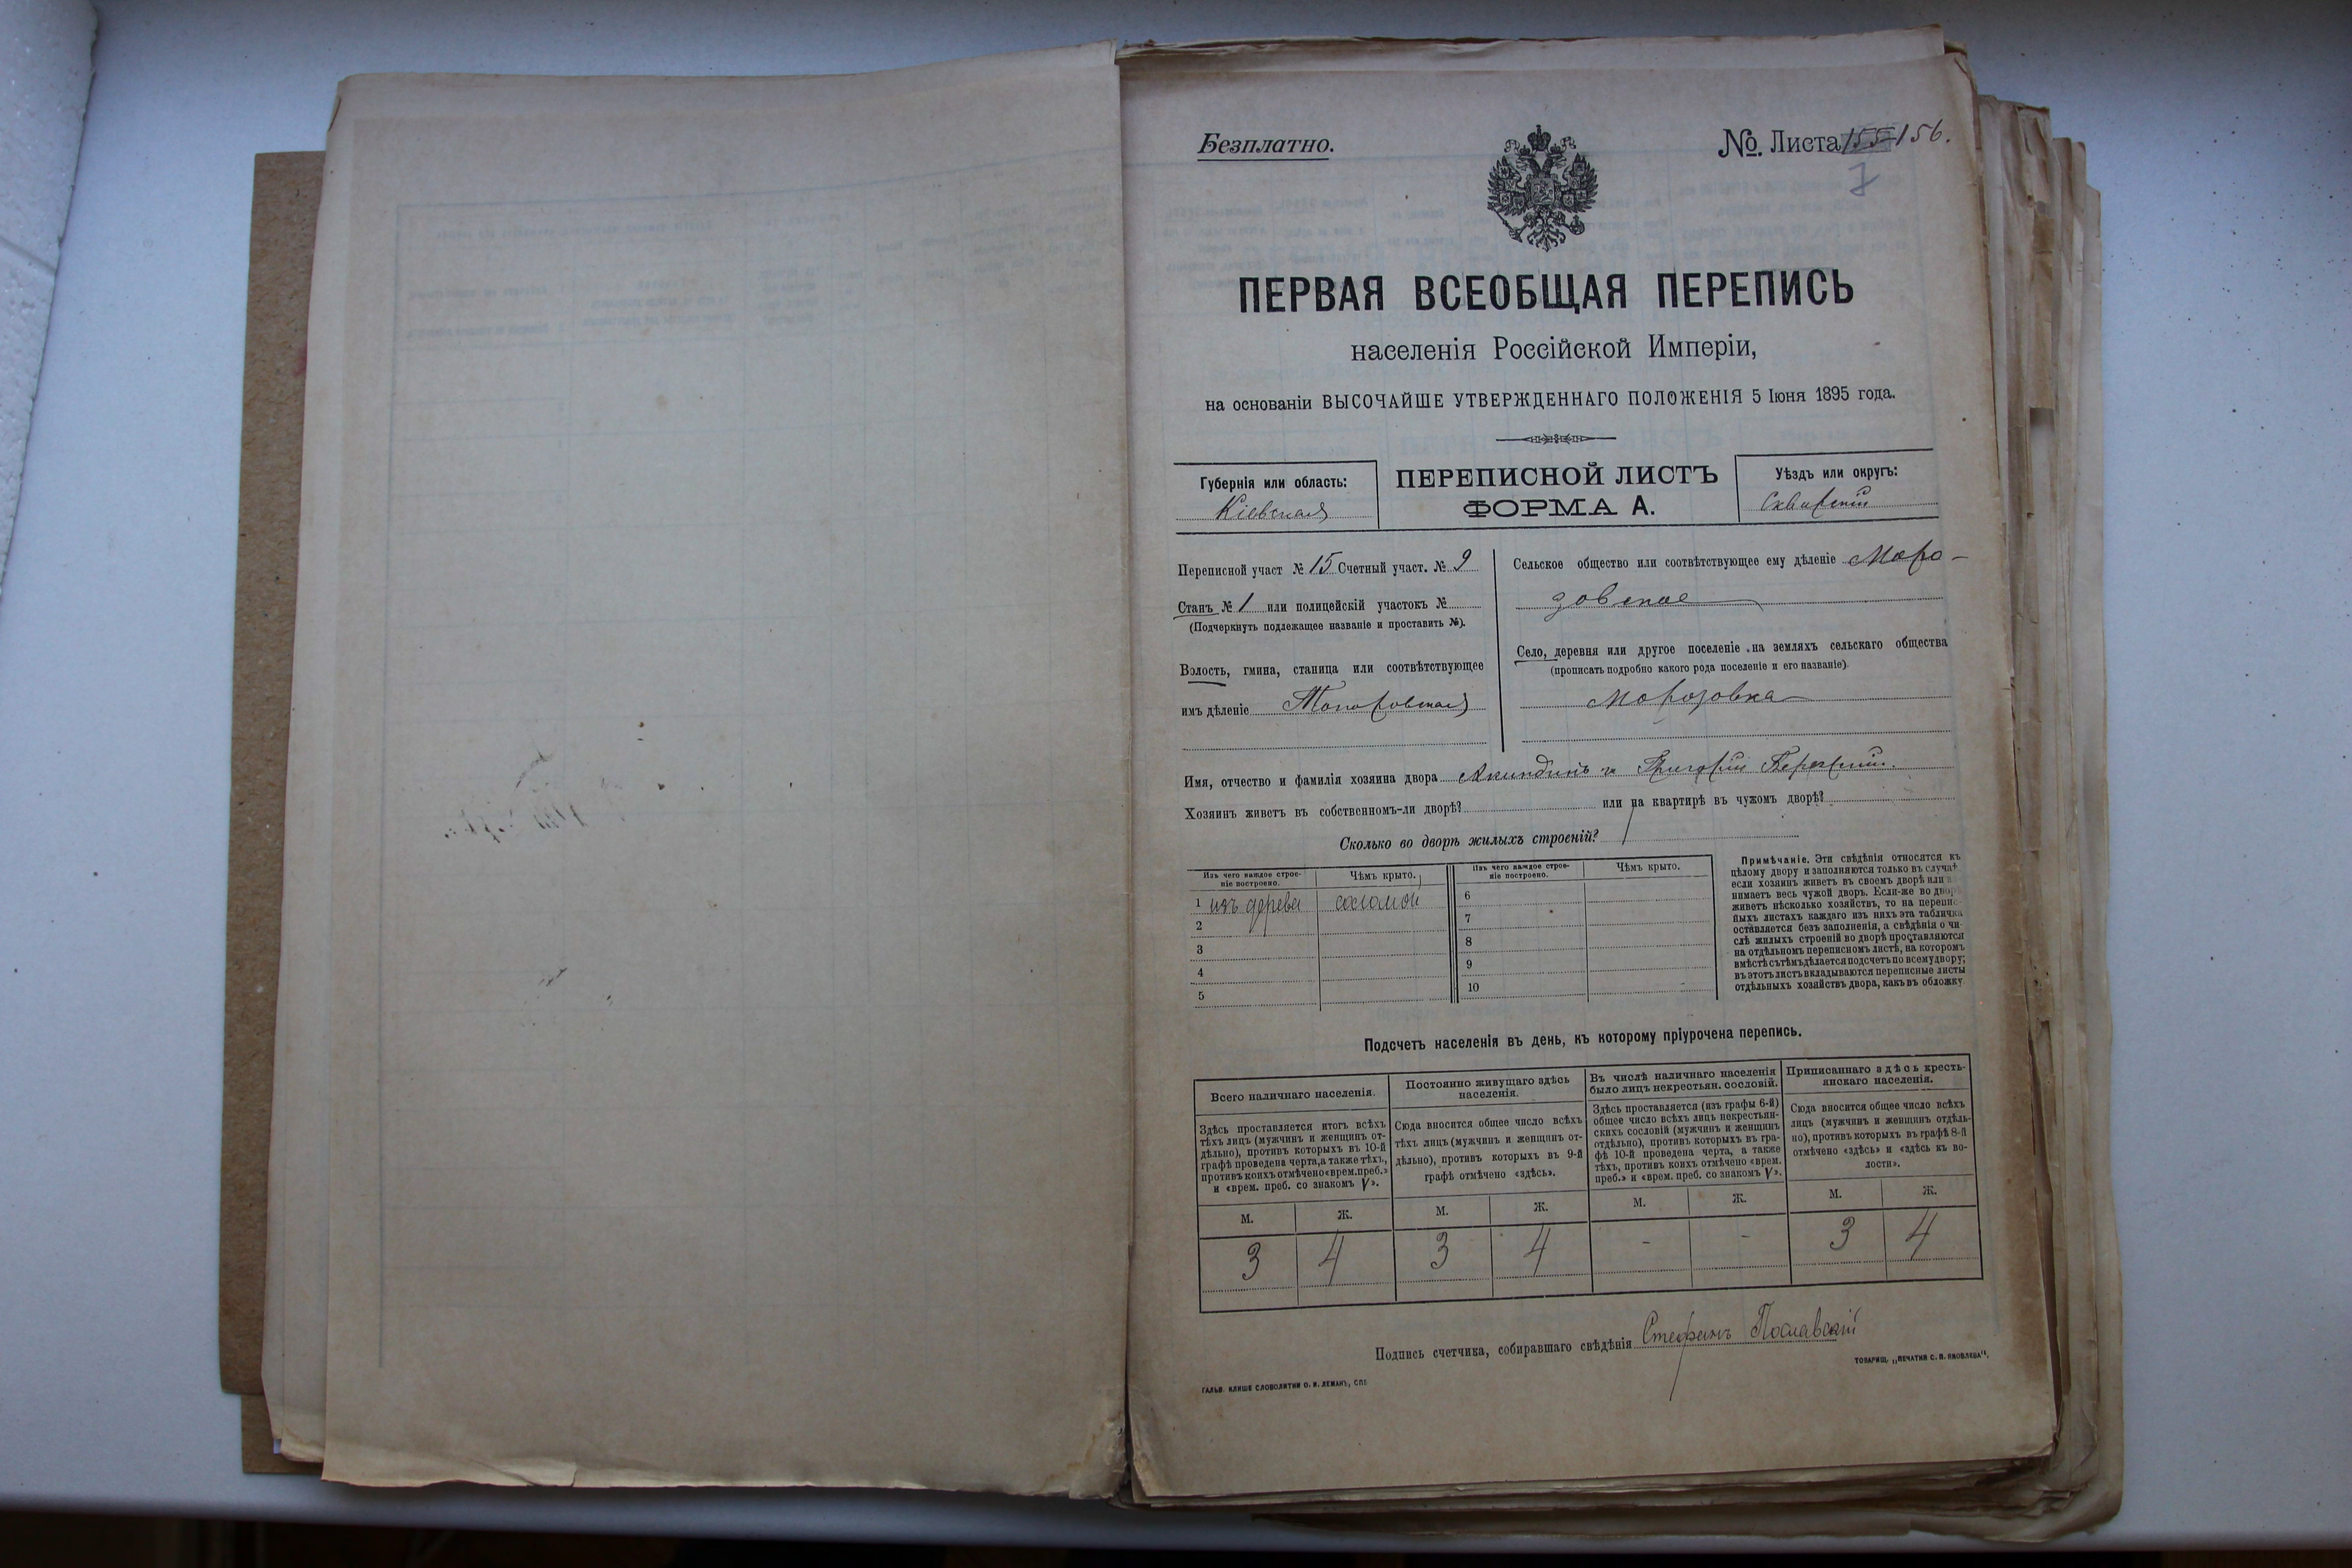 Безплатно.
№. Листа 155 156.
7
ПЕРВАЯ ВСЕОБЩАЯ ПЕРЕПИСЬ
населенія Россійской Имперіи,
на основаніи ВЫСОЧАЙШЕ УТВЕРЖДЕННАГО ПОЛОЖЕНІЯ 5 Іюня 1895 года.
Губернія или область:
Кіевская
ПЕРЕПИСНОЙ ЛИСТЪ
ФОРМА А.
Уѣздъ или округъ:
Сквирскій
Переписной участ № 15 Счетный участ. № 9
Станъ № 1 или полицейскій участокъ №
(Подчеркнуть подлежащее названіе и проставить №).
Волость, гмина, станица или соотвѣтствующее
имъ дѣленіе Топоровская
Сельское общество или соотвѣтствующее ему дѣленіе Моро-
зовское
Село, деревня или другое поселеніе на земляхъ сельскаго общества
(прописать подробно какого рода поселеніе и его названіе).
Морозовка
Имя, отчество и фамилія хозяина двора Акиндинъ и Григорій
Хозяинъ живетъ въ собственномъ-ли дворѣ? или на квартирѣ въ чужомъ дворѣ?
Сколько во дворѣ жилыхъ строеній? 1
Изъ чего каждое строе-
ніе построено.
Чѣмъ крыто.
Изъ чего каждое строе-
ніе построено.
Чѣмъ крыто.
1 изъ дерева соломой
2
3
4
5
6
7
8
9
10
Примѣчаніе. Эти свѣдѣнія относятся къ
цѣлому двору и заполняются только въ случаѣ
если хозяинъ живетъ въ своемъ дворѣ или за-
нимаетъ весь чужой дворъ. Если-же во дворѣ
живетъ нѣсколько хозяйствъ, то на перепис-
ныхъ листахъ каждаго изъ нихъ эта табличка
оставляется безъ заполненія, а свѣдѣнія о чи-
слѣ жилыхъ строеній во дворѣ проставляются
на отдѣльномъ переписномъ листѣ, на которомъ
вмѣстѣ съ тѣмъ дѣлается подсчетъ по всему двору;
въ этотъ листъ вкладываются переписные листы
отдѣльныхъ хозяйствъ двора, какъ въ обложку
Подсчетъ населенія въ день, къ которому пріурочена перепись.
Всего наличнаго населенія.
Здѣсь проставляется итогъ всѣхъ
тѣхъ лицъ (мужчинъ и женщинъ от-
дѣльно), противъ которыхъ въ 10-й
графѣ проведена черта, а также тѣхъ,
противъ коихъ отмѣчено «врем. преб.»
и «врем. преб. со знакомъ V».
Постоянно живущаго здѣсь
населенія.
Сюда вносится общее число всѣхъ
тѣхъ лицъ (мужчинъ и женщинъ от-
дѣльно), противъ которыхъ въ 9-й
графѣ отмѣчено «здѣсь».
Въ числѣ наличнаго населенія
было лицъ некрестьян. сословій.
Здѣсь проставляется (изъ графы 6-й)
общее число всѣхъ лицъ некрестьян-
скихъ сословій (мужчинъ и женщинъ
отдѣльно), противъ которыхъ въ гра-
фѣ 10-й проведена черта, а также
тѣхъ, противъ коихъ отмѣчено «врем.
преб.» и «врем. преб. со знакомъ V».
Приписаннаго здѣсь кресть-
янскаго населенія.
Сюда вносится общее число всѣхъ
лицъ (мужчинъ и женщинъ отдѣль-
но), противъ которыхъ въ графѣ 8-й
отмѣчено «здѣсь» и «здѣсь къ во-
лости».
М. Ж. М. Ж. М. Ж. М. Ж.
3 4 3 4 - - 3 4
Подпись счетчика, собиравшаго свѣдѣнія Стефанъ Пославскій
ГАЛЬВ. КЛИШЕ СЛОВОЛИТНИ О. И. ЛЕМАНЪ, СПБ
ТОВАРИЩ. „ПЕЧАТНЯ С. П. ЯКОВЛЕВА".